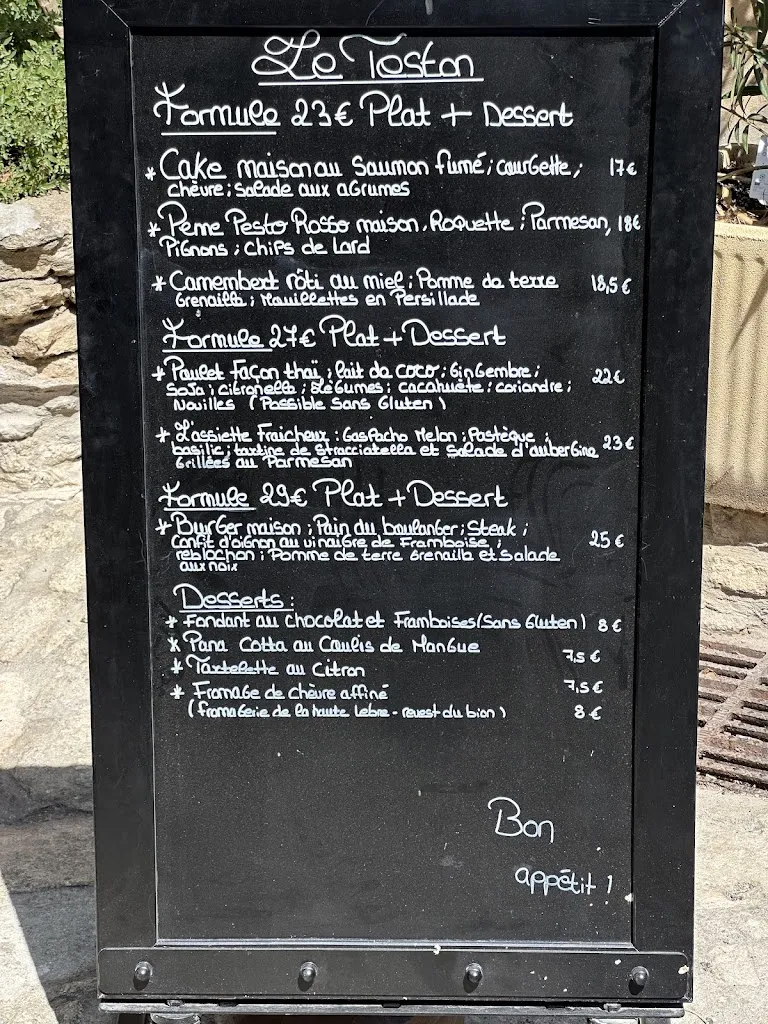 Le Teston
Formule 23€ Plat + Dessert
* Cake maison au Saumon fumé ; courgette ; 17€
chèvre ; salade aux agrumes
* Penne Pesto Rosso maison, Roquette ; Parmesan, 18€
Pignons ; chips de Lard
* Camembert rôti au miel ; Pomme de terre 18,5€
Grenaille ; Mouillettes en Persillade
Formule 27€ Plat + Dessert
* Poulet Façon thaï ; lait de coco ; Gingembre ;
Soja ; citronelle ; Légumes ; cacahuète ; coriandre ; 22€
Nouilles (Possible Sans Gluten)
* L'assiette Fraicheur : Gaspacho Melon ; Pastèque ;
basilic ; tartine de Stracciatella et Salade d'aubergine 23€
Grillées au Parmesan
Formule 29€ Plat + Dessert
* Burger maison ; Pain du boulanger ; Steak ;
Confit d'oignon au vinaigre de Framboise ; 25€
reblochon ; Pomme de terre Grenaille et Salade
aux noix
Desserts :
* Fondant au chocolat et Framboises (Sans Gluten) 8€
* Pana Cotta au Coulis de Mangue 7,5€
* Tartelette au Citron 7,5€
* Fromage de chèvre affiné
(fromagerie de la haute Lebre - revest du bion) 8€
Bon
appétit !